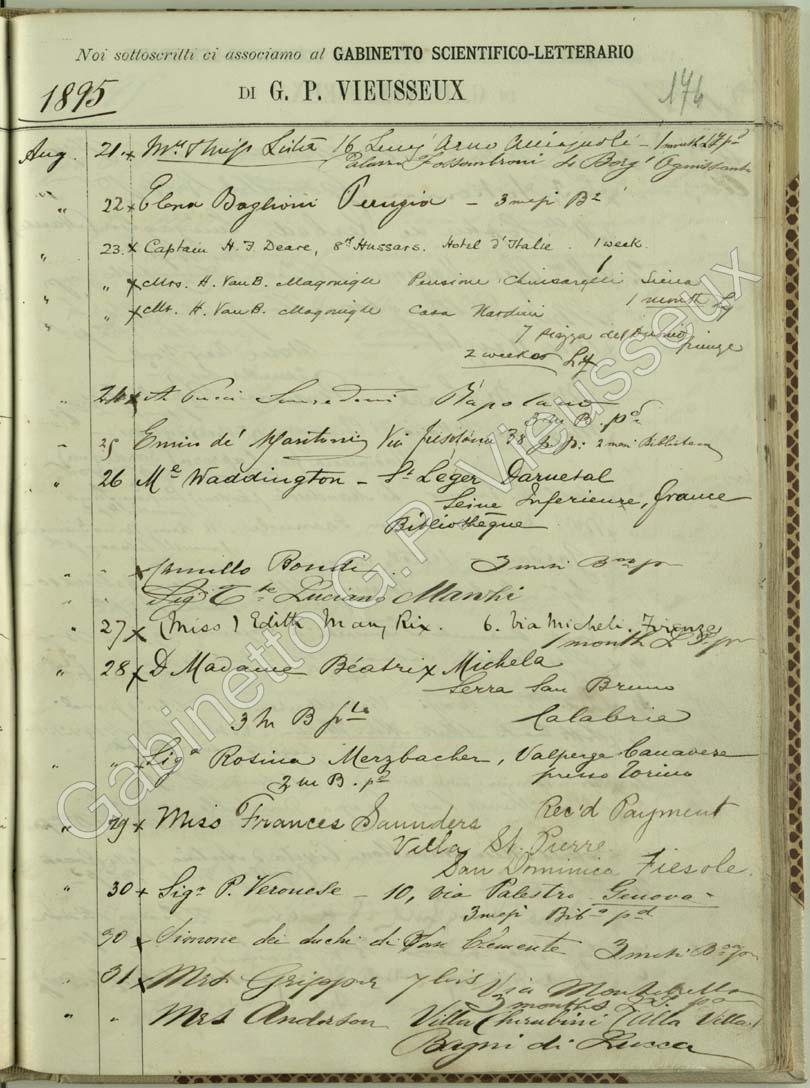 Noi sottoscritti ci associamo al GABINETTO SCIENTIFICO-LETTERARIO
1895 DI G. P. VIEUSSEUX 174
Aug. 21. x 16 Lung' Arno Acciajuoli - 1 month
Palazzo Fossombroni Borg' Ognissanti
" 22 x Elena Baglioni Perugia - 3 mesi
" 23. x Captain H. F. Deare, 8th Hussars. Hotel d'Italie. 1 week.
" " x Mrs. H. Van B. Magonigle Pensione Chiusarelli Siena
" " x Mr. H. Van B. Magonigle Casa Nardini 1 month
7 piazza del Duomo
2 weeks firenze
" 24 x Pucci Rapolano
3 m B. pd
" 25 Via 38 2 mesi Biblioteca
" 26 Me Waddington - St Léger Darnetal
Seine Inferieure, france
Bibliothèque
" " x Camillo Bondi. 3 mesi
Luciano
" 27 x (Miss) Edith Mary Rix. 6. Via Micheli. Firenze
1 month
" 28 x D Madame Béatrix Michela
Serra San Bruno
3 m B Calabria
" " x Siga Rosina Merzbacher, Valperga Canavese
2 m B. pd presso Torino
" 29 x Miss Frances Saunders Rec'd Payment
Villa St. Pierre
San Domenico Fiesole.
" 30 + Sigr P. Veronese - 10, via Palestro Genova -
3 mesi pd
30 x Simone dei duchi di San Clemente 3 mesi
" 31 x Mrs Gripper 7 bis Via Montebello
months
" " Mrs Anderson Villa Cherubini (Alla Villa)
Bagni di Lucca
Gabinetto G.P. Vieusseux